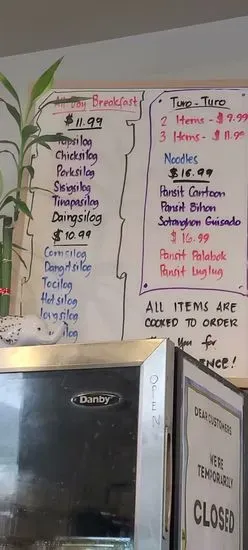 All Day Breakfast
$11.99
Tapsilog
Chicksilog
Porksilog
Sisigsilog
Tinapasilog
Daingsilog
$10.99
Cornsilog
Dangitsilog
Tocilog
Hotsilog
Longsilog
Turo-Turo
2 Items - $9.99
3 Items - $11.99
Noodles
$16.99
Pansit Cantoon
Pansit Bihon
Sotanghon Guisado
$16.99
Pansit Palabok
Pansit Luglug
ALL ITEMS ARE
COOKED TO ORDER
You for
ENCE!
Danby
OPEN
DEAR CUSTOMERS
WE'RE
TEMPORARILY
CLOSED